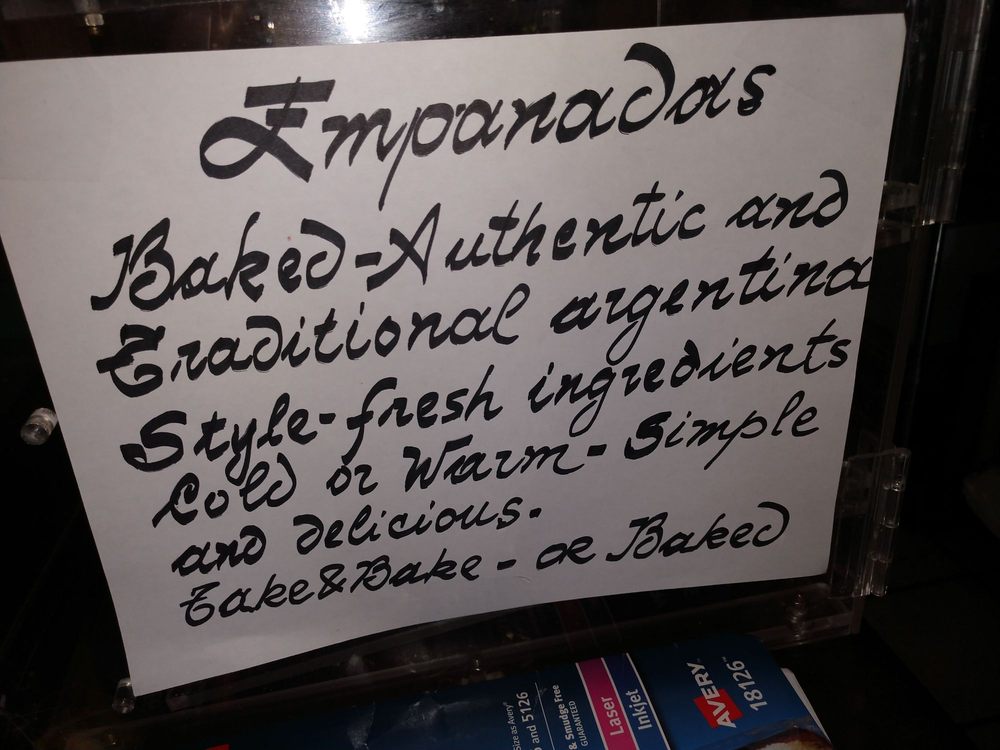 Empanadas
Baked-Authentic and
Traditional argentina
Style-fresh ingredients
Cold or Warm-Simple
and delicious.
Take&Bake - or Baked
Size as Avery
and 5126
& Smudge Free
GUARANTEED
Laser
Inkjet
AVERY.
18126™